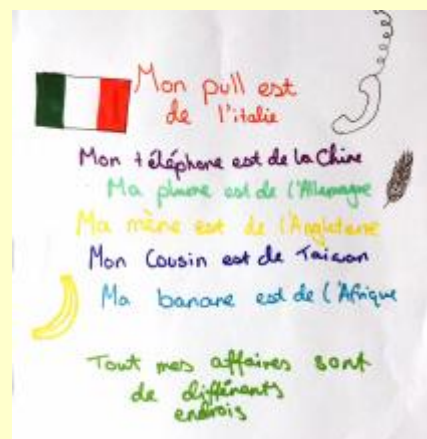 Mon pull est
de l'italie
Mon téléphone est de la Chine
Ma plume est de l'Allemagne
Ma mère est de l'Angleterre
Mon Cousin est de Taiwan
Ma banane est de l'Afrique
Tout mes affaires sont
de différents
endrois